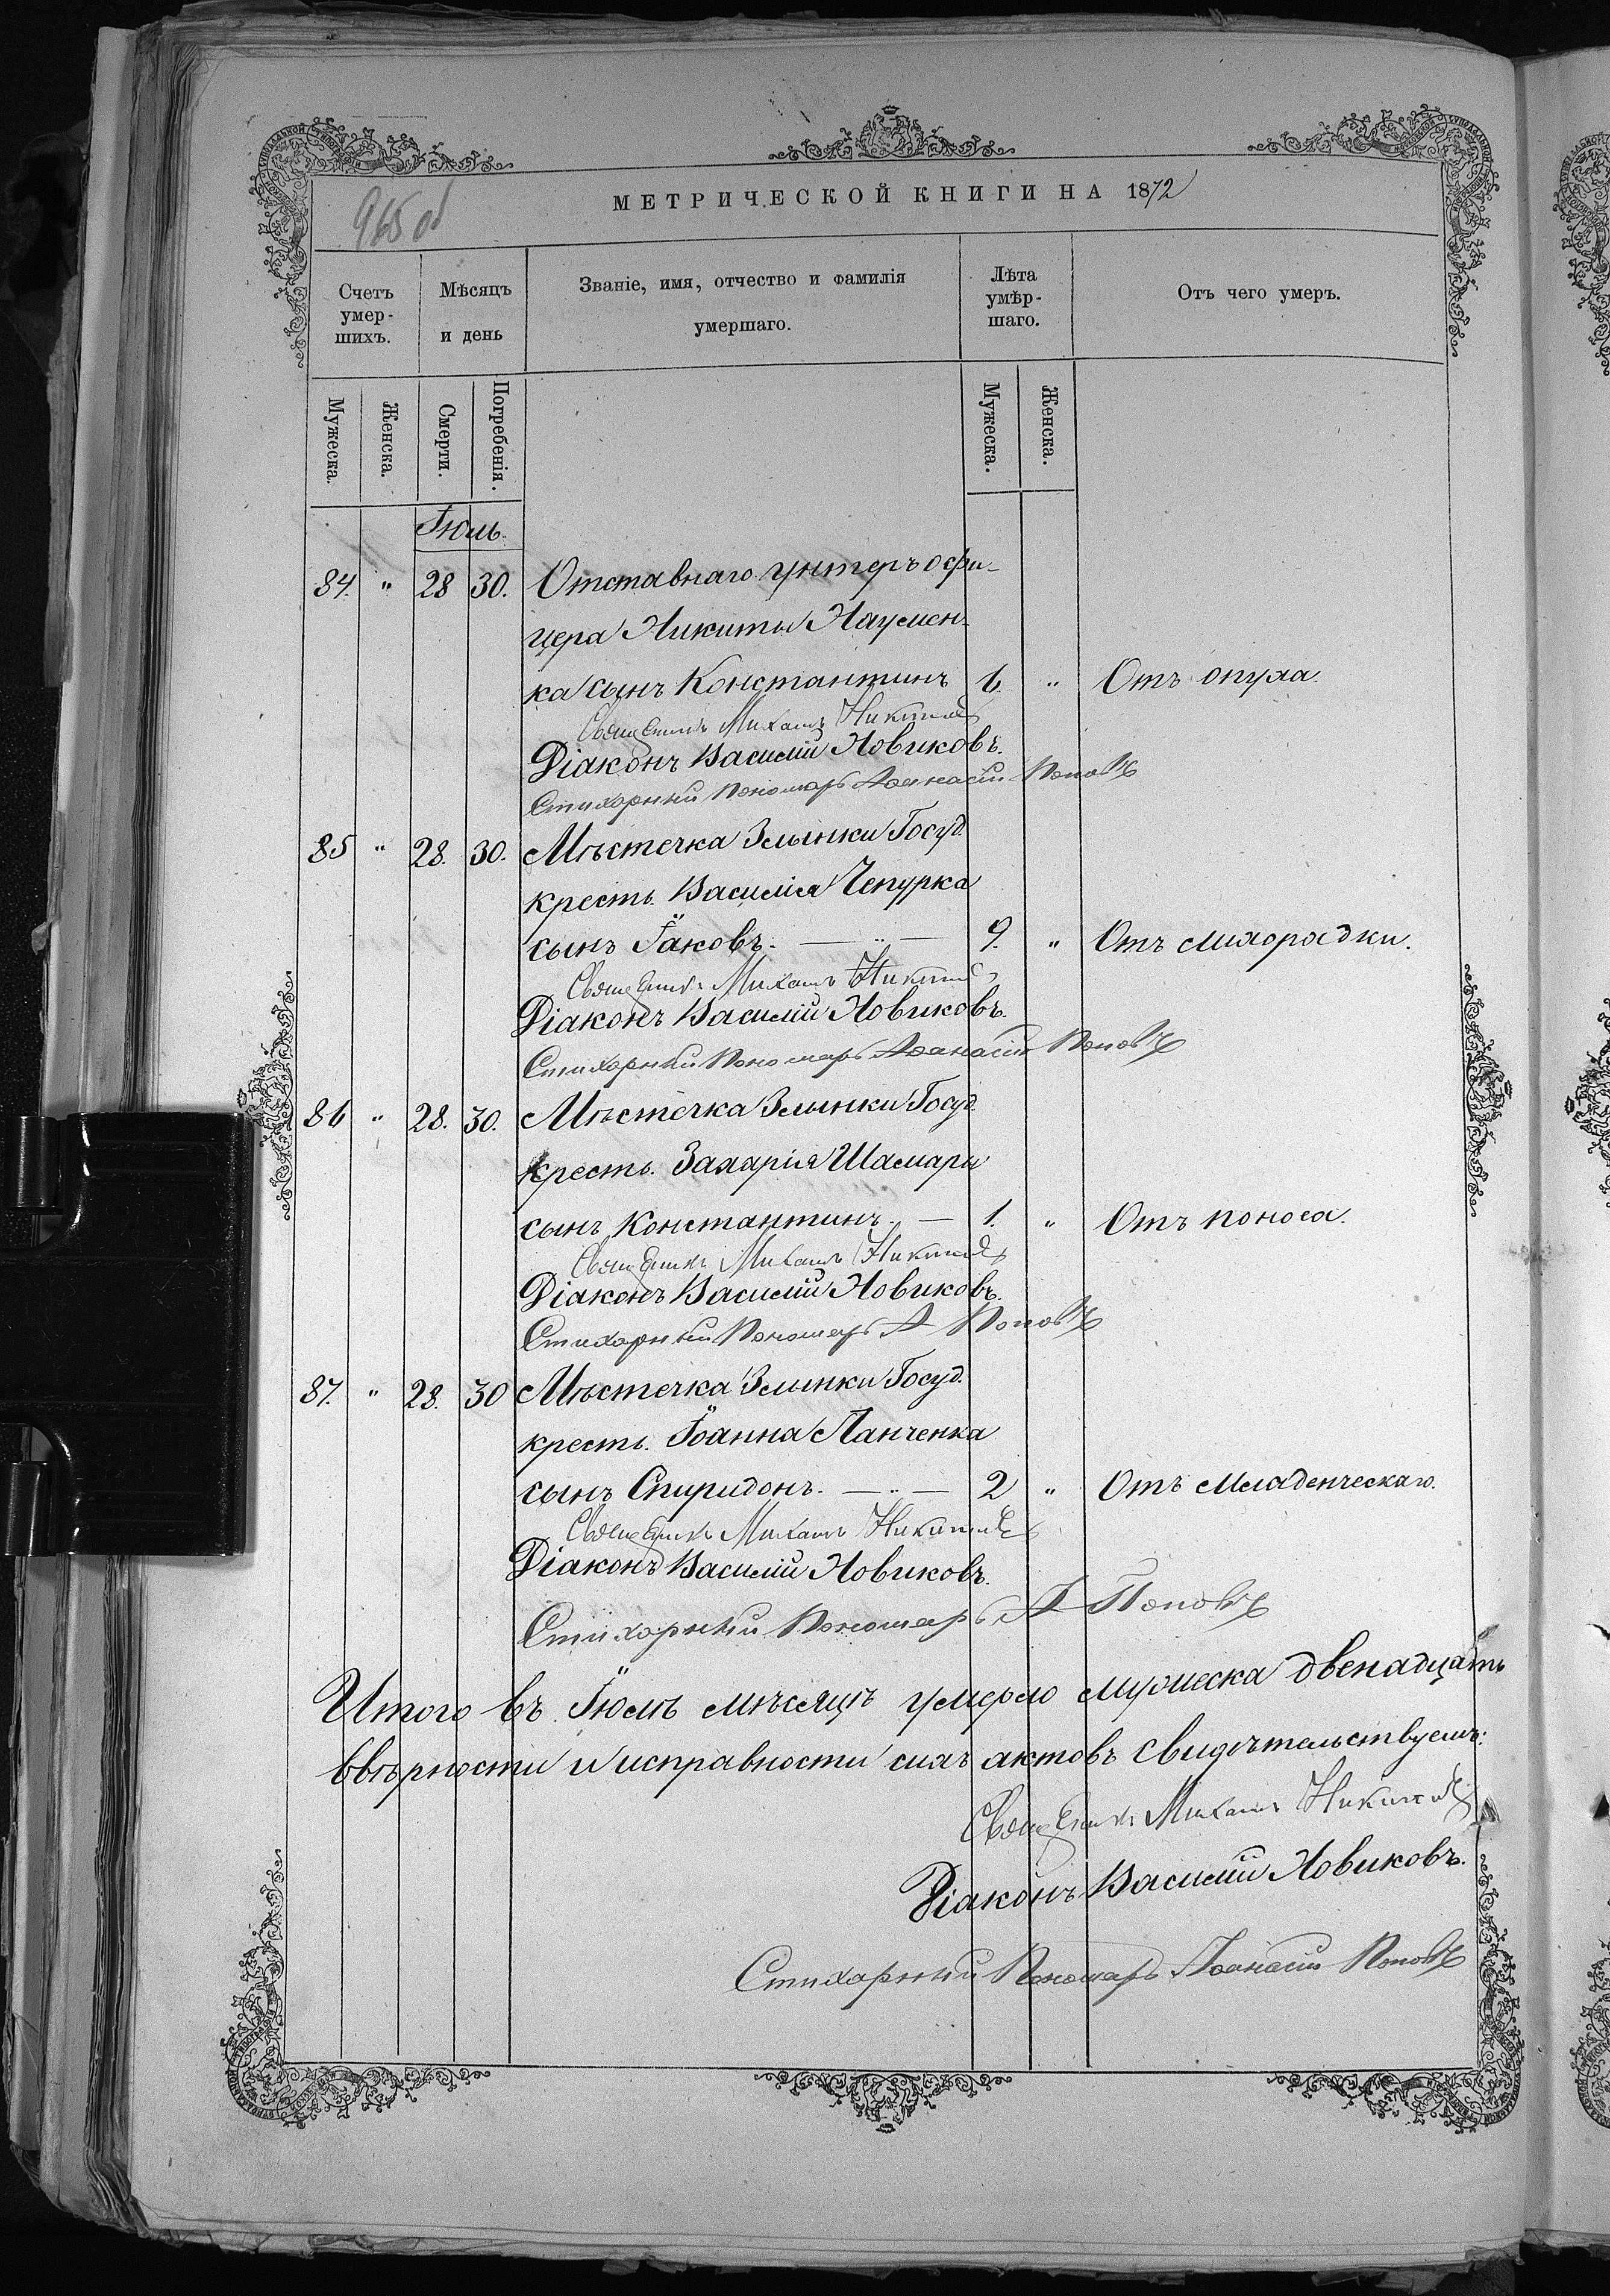 965 об
МЕТРИЧЕСКОЙ КНИГИ НА 1872
Счетъ умер-шихъ.
Мѣсяцъ и день
Званіе, имя, отчество и фамилія умершаго.
Лѣта умѣр-шаго.
Отъ чего умеръ.
Мужеска. Женска. Смерти. Погребенія. Мужеска. Женска.
Іюль.
84. " 28 30. Отставнаго унтеръ офи-
цера Никиты Наумен-
ка сынъ Константинъ 6. " Отъ опуха.
Священникъ Михаилъ
Діаконъ Василій Новиковъ.
Стихарный Пономарь Аѳанасій Поповъ
85 " 28. 30. Мѣстечка Злынки Госуд.
крестъ. Василія Чепурка
сынъ Іаковъ. — " — 9. " Отъ лихорадки.
Священникъ Михаилъ
Діаконъ Василій Новиковъ.
Стихарный Пономарь Аѳанасій Поповъ
86 " 28. 30. Мѣстечка Злынки Госуд.
крестъ. Захарія Шамары
сынъ Константинъ. — 1. " Отъ поноса.
Священникъ Михаилъ
Діаконъ Василій Новиковъ.
Стихарный Пономарь А Поповъ
87. " 28. 30 Мѣстечка Злынки Госуд.
крестъ. Іоанна Панченка
сынъ Спиридонъ. — " — 2 " Отъ младенческаго.
Священникъ Михаилъ
Діаконъ Василій Новиковъ.
Стихарный Пономарь А Поповъ
Итого въ Іюлѣ мѣсяцѣ умерло мужеска двенадцать
Ввѣрности и исправности сихъ актовъ свидѣтельствуемъ:
Священникъ Михаилъ
Діаконъ Василій Новиковъ.
Стихарный Пономарь Аѳанасій Поповъ